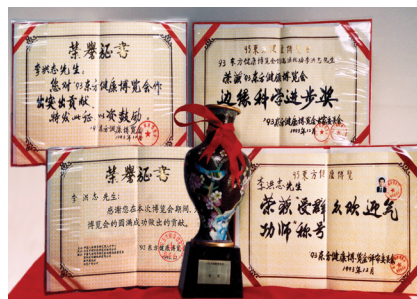 荣誉证书
李洪志先生：
您对'93东方健康博览会作
出突出贡献.
特发此证以资鼓励.
'93东方健康博览会
1993年12月
'93东方健康博览会
李洪志先生
荣获'93东方健康博览会
边缘科学进步奖
'93东方健康博览会
1993年12月
荣誉证书
李洪志 先生：
感谢您在本次博览会期间,为
博览会的圆满成功做出的贡献.
'93东方健康博览会
'93东方健康博览
李洪志先生
荣获受群众欢迎气
功师"称号
'93东方健康博览会评审委员会
1993年12月